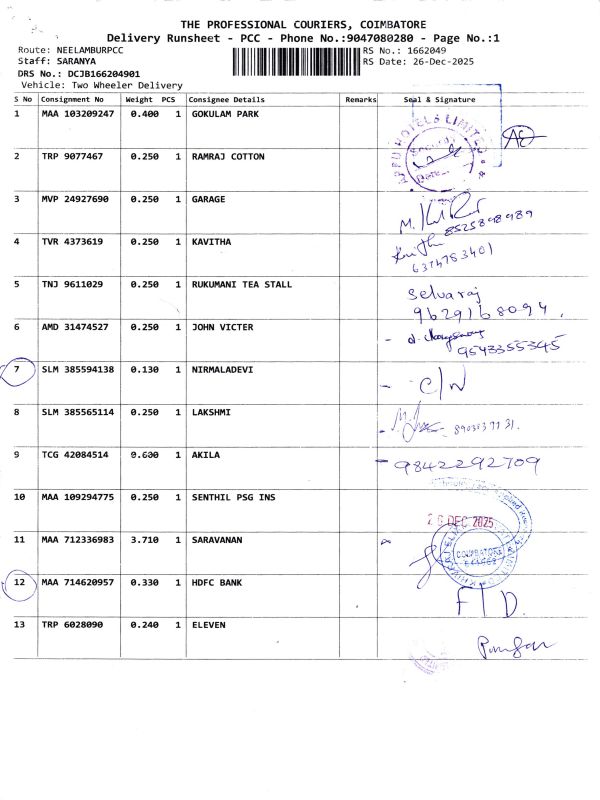 THE PROFESSIONAL COURIERS, COIMBATORE
Delivery Runsheet - PCC - Phone No.:9047080280 - Page No.:1
Route: NEELAMBURPCC
RS No.: 1662049
Staff: SARANYA
RS Date: 26-Dec-2025
DRS No.: DCJB166204901
Vehicle: Two Wheeler Delivery
S No Consignment No Weight PCS Consignee Details Remarks Seal & Signature
1 MAA 103209247 0.400 1 GOKULAM PARK
2 TRP 9077467 0.250 1 RAMRAJ COTTON
3 MVP 24927690 0.250 1 GARAGE
8525898989
4 TVR 4373619 0.250 1 KAVITHA
6374753401
5 TNJ 9611029 0.250 1 RUKUMANI TEA STALL
Selvaraj
9629168094.
6 AMD 31474527 0.250 1 JOHN VICTER
9543355345
7 SLM 385594138 0.130 1 NIRMALADEVI
- C/N
8 SLM 385565114 0.250 1 LAKSHMI
9 TCG 42084514 0.600 1 AKILA
- 9842292709
10 MAA 109294775 0.250 1 SENTHIL PSG INS
26 DEC 2025
11 MAA 712336983 3.710 1 SARAVANAN
COIMBATORE
12 MAA 714620957 0.330 1 HDFC BANK
13 TRP 6028090 0.240 1 ELEVEN